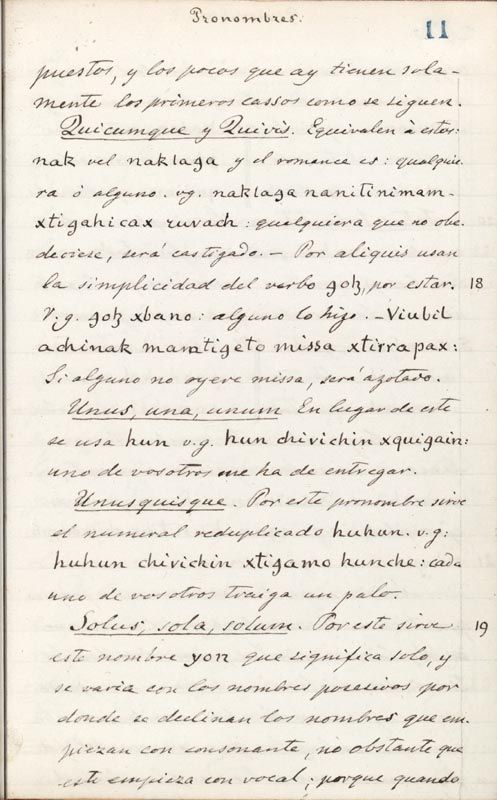 Pronombres.
11
puestos, y los pocos que ay tienen sola-
mente los primeros cassos como se siguen.
Quicumque y Quivis. Equivalen à estos:
nak vel naklaga y el romance es: qualquie-
ra ò alguno. vg. naklaga nanitinimam-
xtigahicax ruvach: qualquiera que no obe-
deciese, será castigado. – Por aliquis usan
la simplicidad del verbo goꜩ, por estar. 18
V.g. goꜩ xbano: alguno lo hizo. – Viubil
achinak maratigeto missa xtirrapax:
Si alguno no oyere missa, será azotado.
Unus, una, unum En lugar de este
se usa hun v.g. hun chivichin xquigain:
uno de vosotros me ha de entregar.
Unusquisque. Por este pronombre sirve
el numeral reduplicado huhun. v.g:
huhun chivichin xtigamo hunche: cada
uno de vosotros traiga un palo.
Solus, sola, solum. Por este sirve 19
este nombre yon que significa solo, y
se varia con los nombres posesivos por
donde se declinan los nombres que em-
piezan con consonante, no obstante que
este empieza con vocal; porque quando